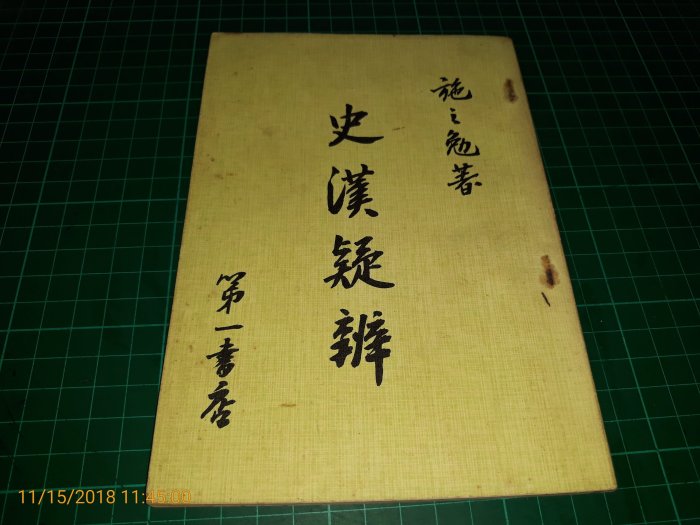 施之勉著
史漢疑辨
第一書店
11/15/2018 11:45:00